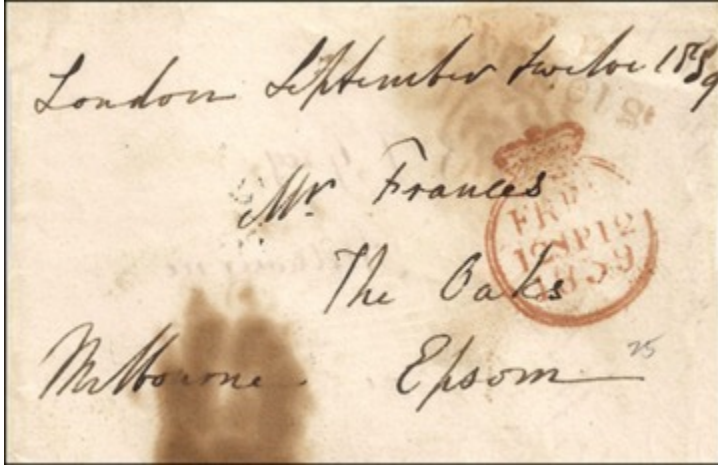 London September twelve 1839
Mr Frances
The Oaks
Melbourne. Epsom
FREE
12SP12
1839
25